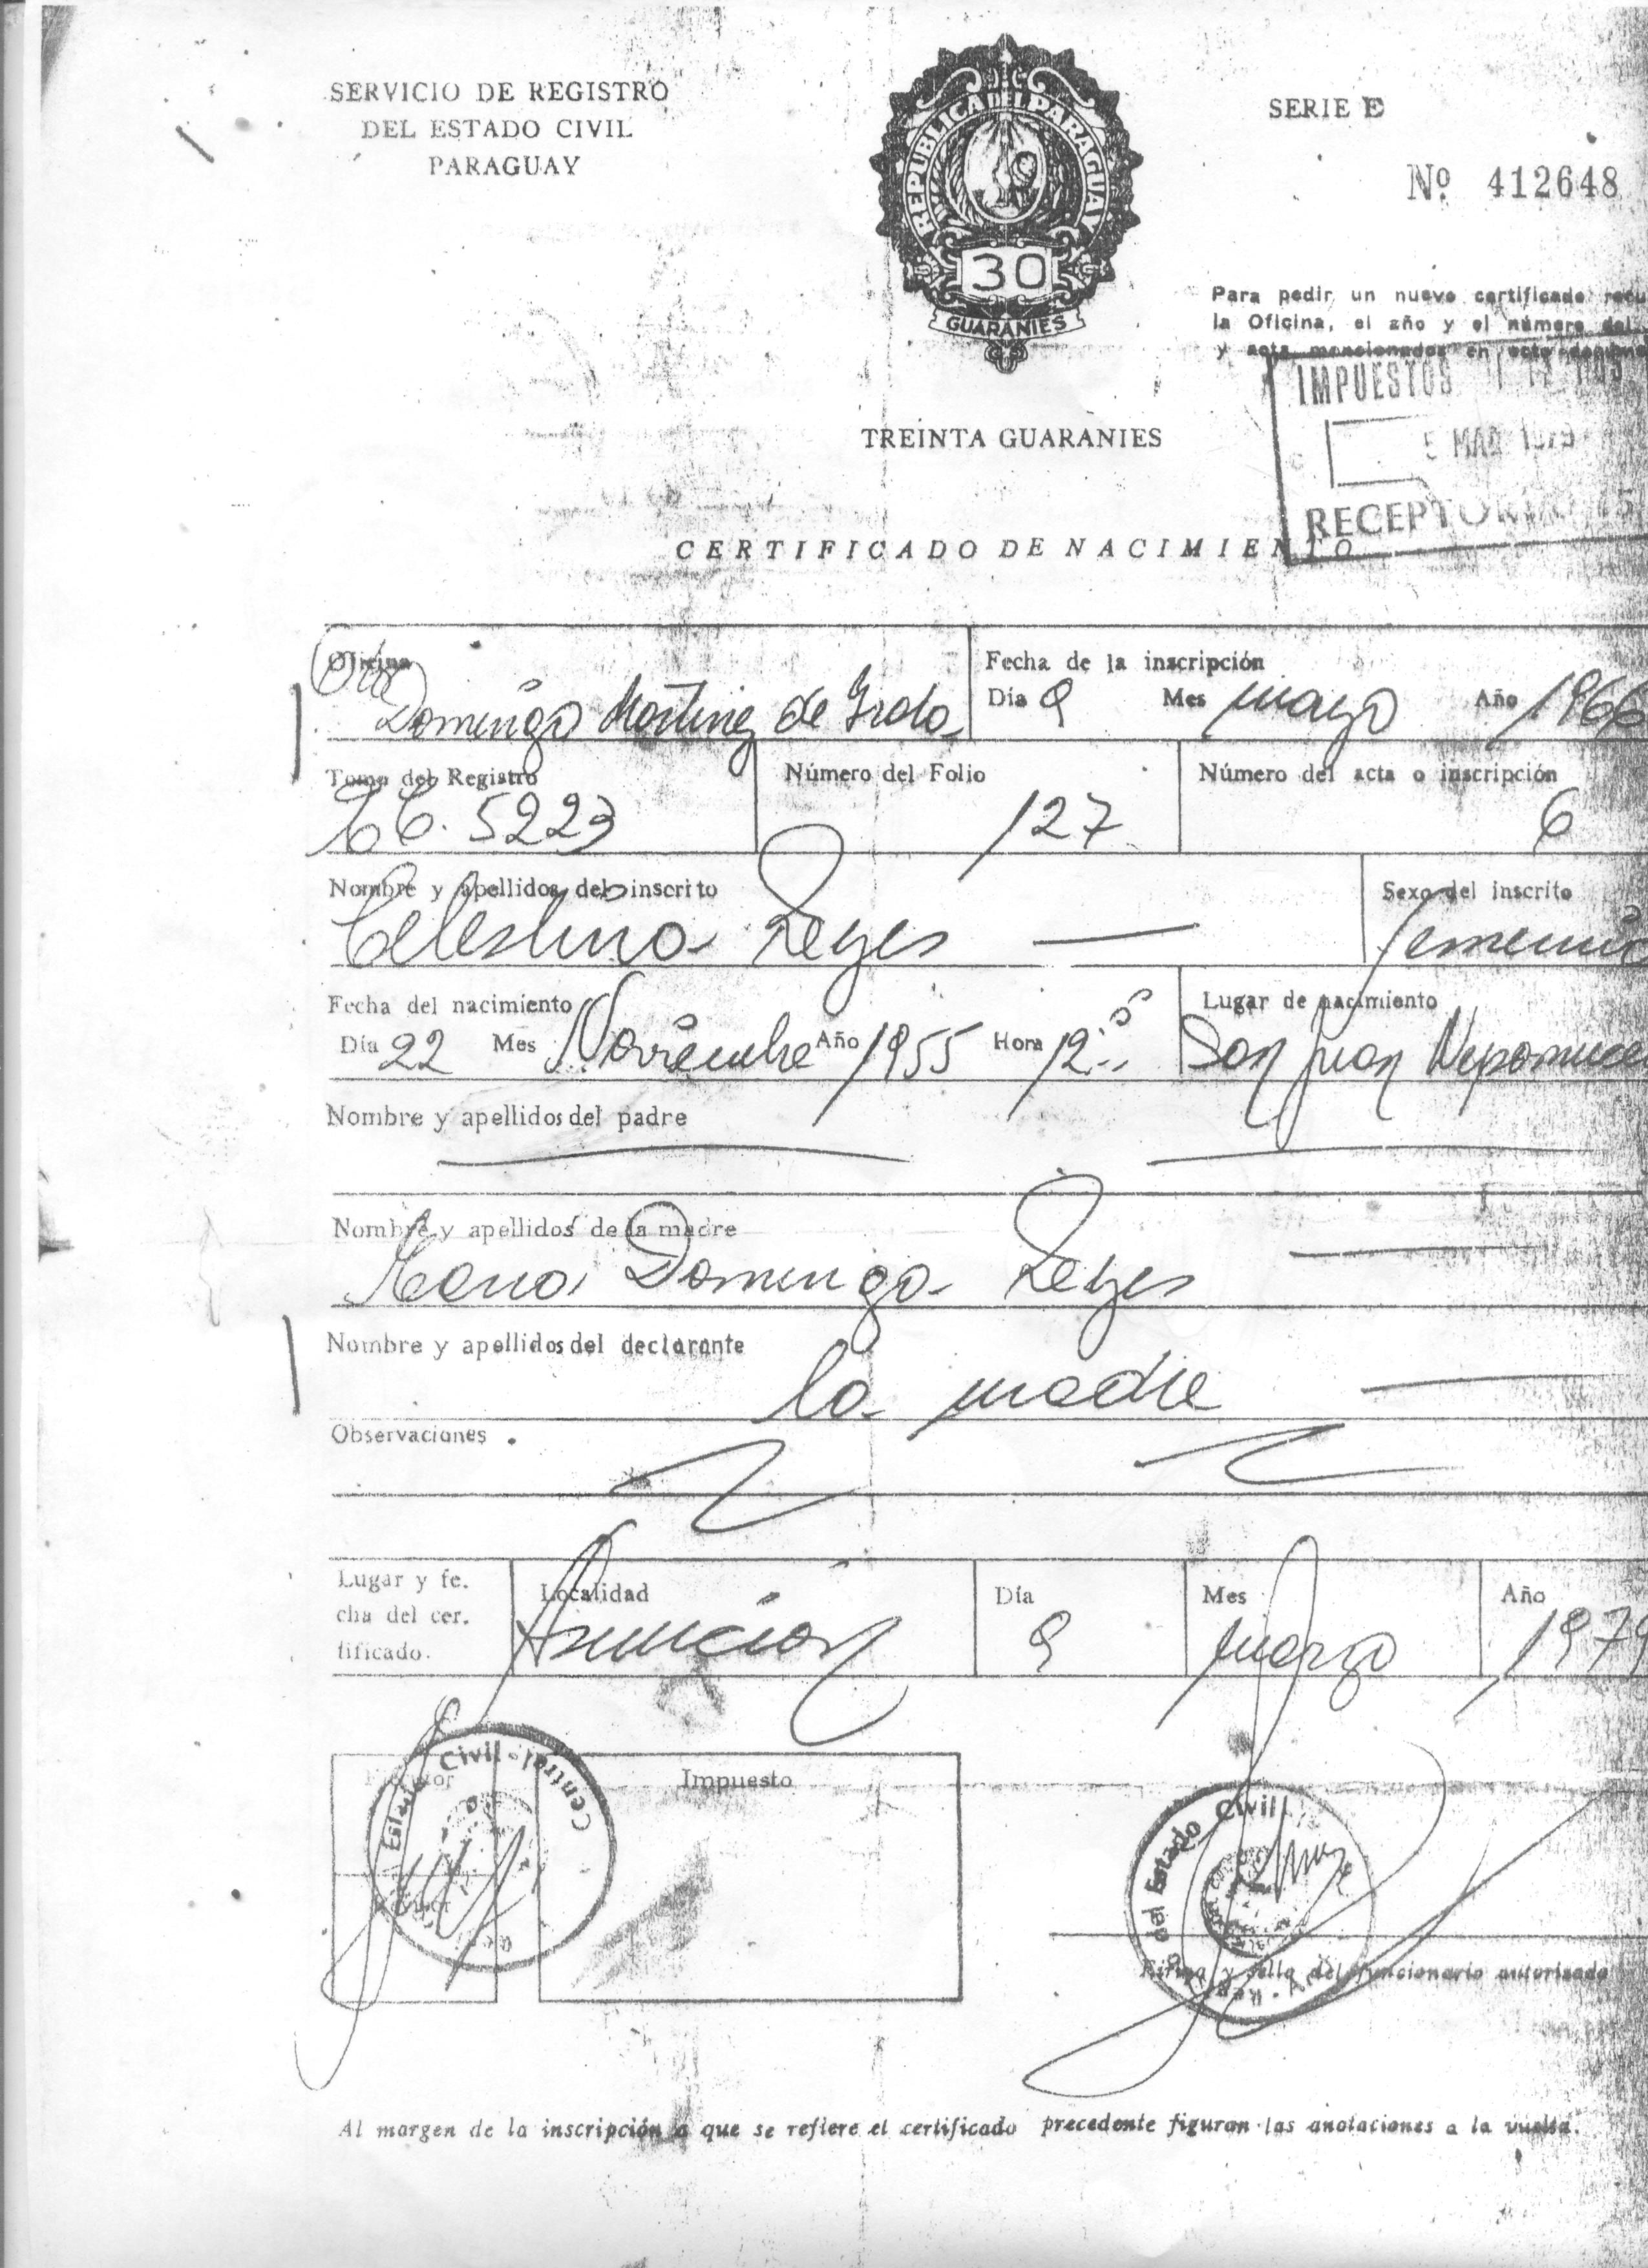 SERVICIO DE REGISTRO
DEL ESTADO CIVIL
PARAGUAY
REPUBLICA DEL PARAGUAY
30
GUARANIES
SERIE E
Nº 412648
Para pedir un nuevo certificado
la Oficina, el año y el número del
y acta mencionados en este
IMPUESTOS
5 MAR 1979
TREINTA GUARANIES
CERTIFICADO DE NACIMIENTO
Oficina
Domingo Martinez de Irala
Fecha de la inscripción
Día 9 Mes mayo Año 1966
Tomo del Registro
5223
Número del Folio
127
Número del acta o inscripción
6
Nombre y apellidos del inscrito
Celestina Reyes
Sexo del inscrito
femenino
Fecha del nacimiento
Día 22 Mes Noviembre Año 1955 Hora 12
Lugar de nacimiento
San Juan Nepomuce
Nombre y apellidos del padre
Nombre y apellidos de la madre
Maria Dominga Reyes
Nombre y apellidos del declarante
la madre
Observaciones
Lugar y fe.
cha del cer.
tificado.
Localidad
Asuncion
Día
9
Mes
marzo
Año
1979
Impuesto
Estado Civil - Central
del Estado Civil
Firma y sello del funcionario autorizado
Al margen de la inscripción a que se refiere el certificado precedente figuran las anotaciones a la vuelta.